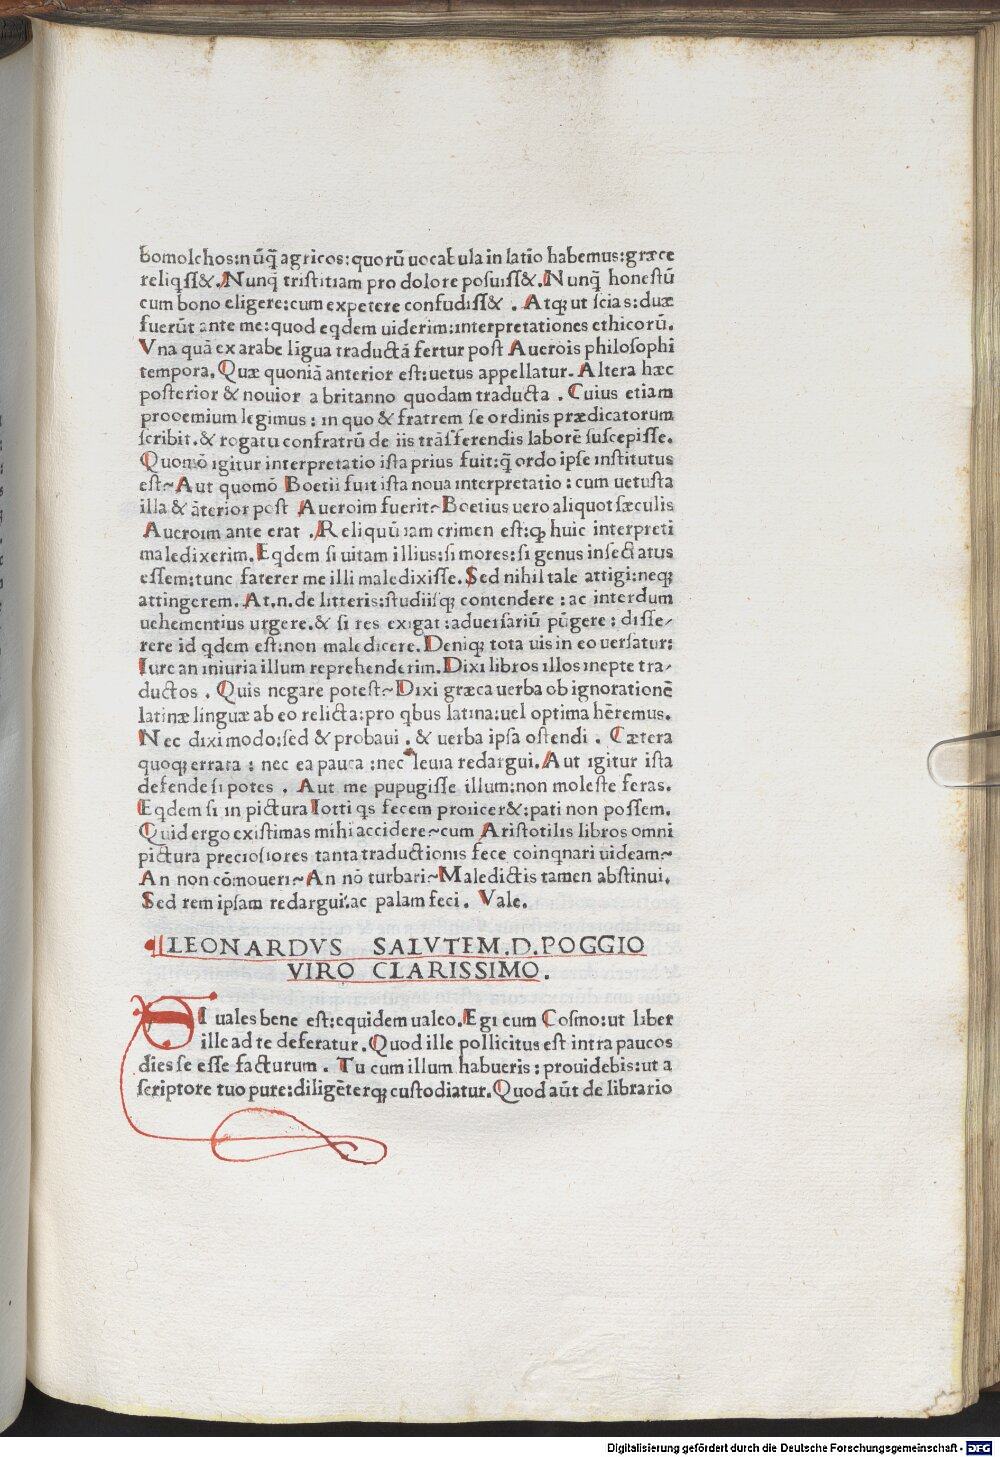 bomolchos:nūq̄ agricos:quorū uocabula in latio habemus:græce
reliqſſ&. Nunq̄ triſtitiam pro dolore poſuiſſ&. Nunq̄ honeſtū
cum bono eligere:cum expetere confudiſſ& . Atqꝫ ut ſcias:duæ
fuerūt ante me:quod eqdem uiderim:interpretationes ethicorū.
Vna quā ex arabe līgua traductā fertur poſt Auerois philoſophi
tempora. Quæ quoniā anterior est:uetus appellatur. Altera hæc
poſterior & nouior a britanno quodam traducta . Cuius etiam
prooemium legimus : in quo & fratrem ſe ordinis prædicatorum
ſcribit.& rogatu confratrū de iis trāſferendis laborē ſuſcepiſſe.
Quomō igitur interpretatio iſta prius fuit:q̄ ordo ipſe inſtitutus
eſt~ Aut quomō Boetii fuit iſta noua interpretatio : cum uetuſta
illa & āterior poſt Aueroim fuerit~ Boetius uero aliquot ſæculis
Aueroim ante erat . Reliquū iam crimen eſt:qꝫ huic interpreti
maledixerim. Eqdem ſi uitam illius:ſi mores:ſi genus inſectatus
eſſem:tunc faterer me illi maledixiſſe. Sed nihil tale attigi:neqꝫ
attingerem. At.n.de litteris:ſtudiiſqꝫ contendere : ac interdum
uehementius urgere.& ſi res exigat :aduerſariū pūgere : diſſe-
rere id qdem est:non maledicere. Deniqꝫ tota uis in eo uerſatur:
Iure an iniuria illum reprehenderim. Dixi libros illos inepte tra-
ductos . Quis negare poteſt~ Dixi græca uerba ob ignorationē
latinæ linguæ ab eo relicta:pro qbus latina:uel optima hēremus.
Nec dixi modo:ſed & probaui . & uerba ipſa oſtendi . Cætera
quoqꝫ errata : nec ea pauca :nec leuia redargui. Aut igitur iſta
defende ſi potes . Aut me pupugiſſe illum:non moleſte feras.
Eqdem ſi in pictura Iotti qs fecem proiicer&:pati non poſſem.
Quid ergo exiſtimas mihi accidere~cum Ariſtotilis libros omni
pictura precioſiores tanta traductionis fece coinqnari uideam~
An non cōmoueri~ An nō turbari~ Maledictis tamen abſtinui.
Sed rem ipſam redargui:ac palam feci . Vale.
LEONARDVS SALVTEM.D.POGGIO
VIRO CLARISSIMO.
SI uales bene eſt:equidem ualeo. Egi cum Coſmo:ut liber
ille ad te deferatur. Quod ille pollicitus eſt intra paucos
dies ſe eſſe facturum . Tu cum illum habueris : prouidebis:ut a
ſcriptore tuo pure:diligēterqꝫ cuſtodiatur. Quod aūt de librario
Digitalisierung gefördert durch die Deutsche Forschungsgemeinschaft - DFG